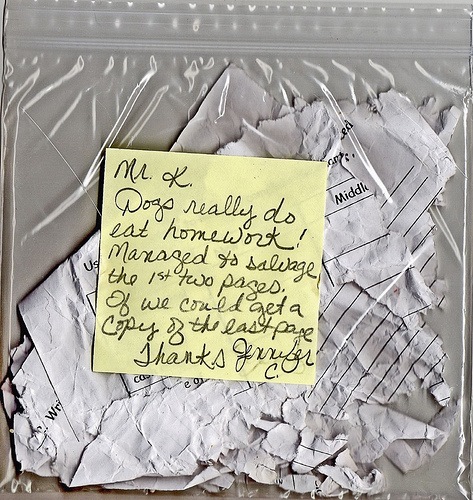 Mr. K.
Dogs really do
eat homework!
Managed to salvage
the 1st two pages.
If we could get a
copy of the last page
Thanks Jennifer
C.
Middl
Us
Wri